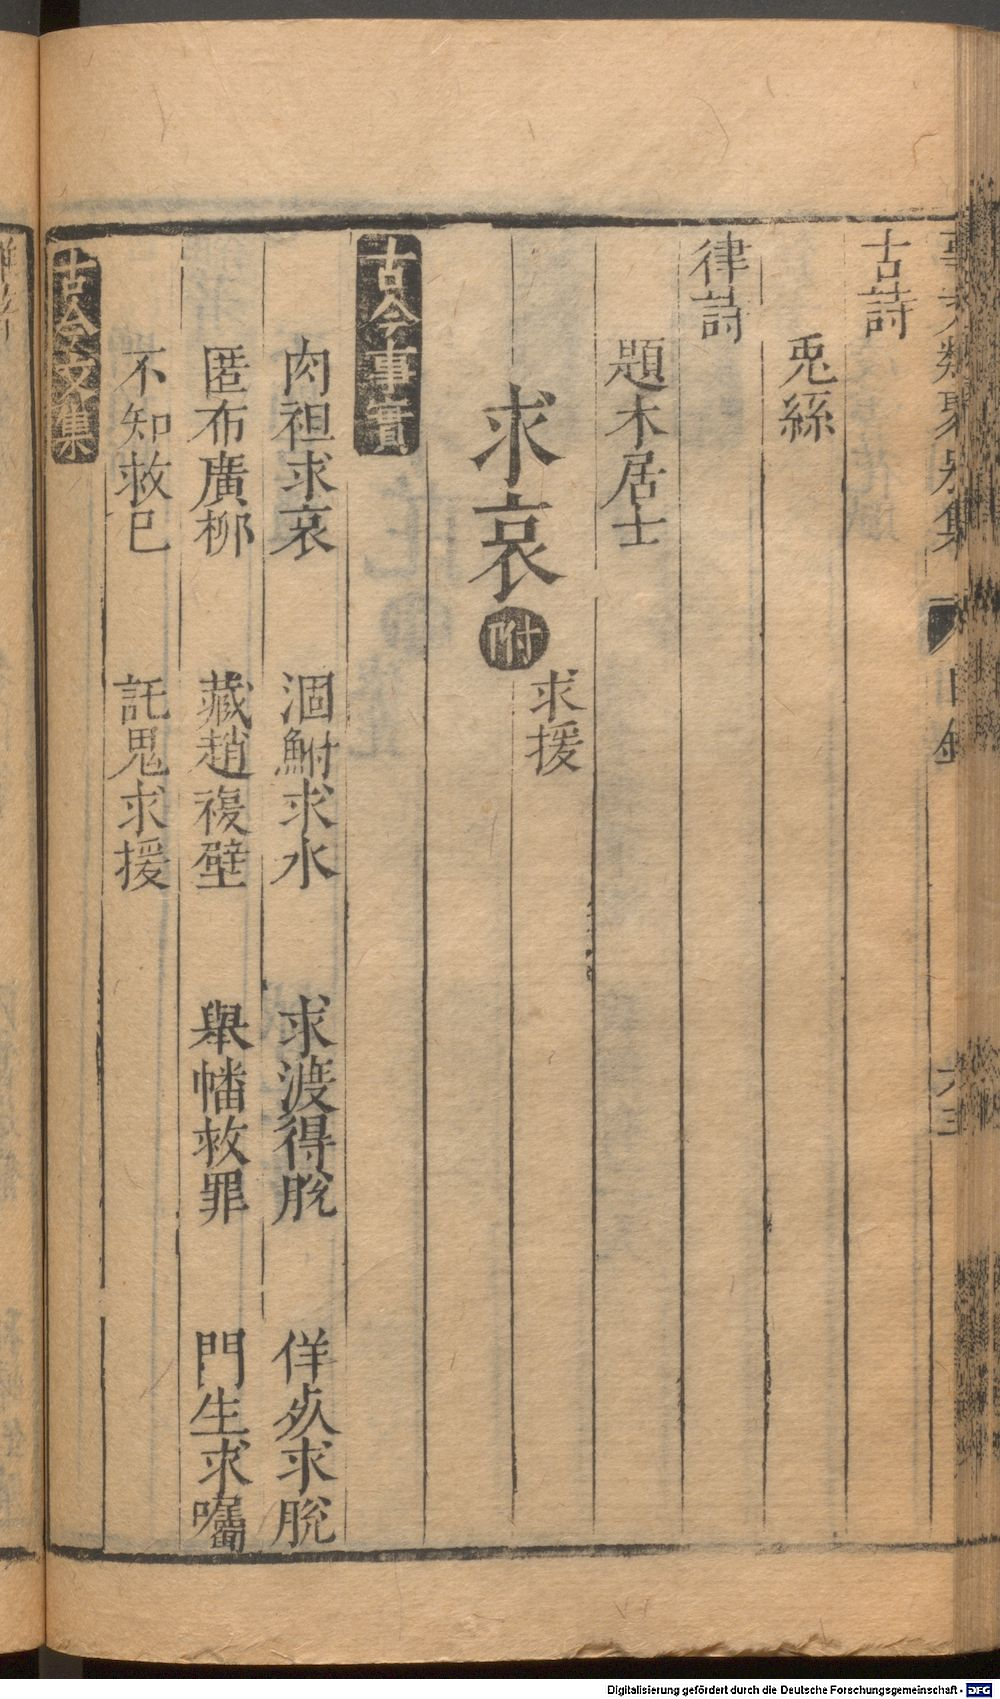 事文類聚別集
目録
六三
古詩
兎絲
律詩
題木居士
求哀 附 求援
古今事實
肉袒求哀 涸鮒求水 求渡得脫 佯死求脫
匿布廣柳 藏趙複壁 舉幡救罪 門生求囑
不知救已 託鬼求援
古今文集
Digitalisierung gefördert durch die Deutsche Forschungsgemeinschaft - DFG